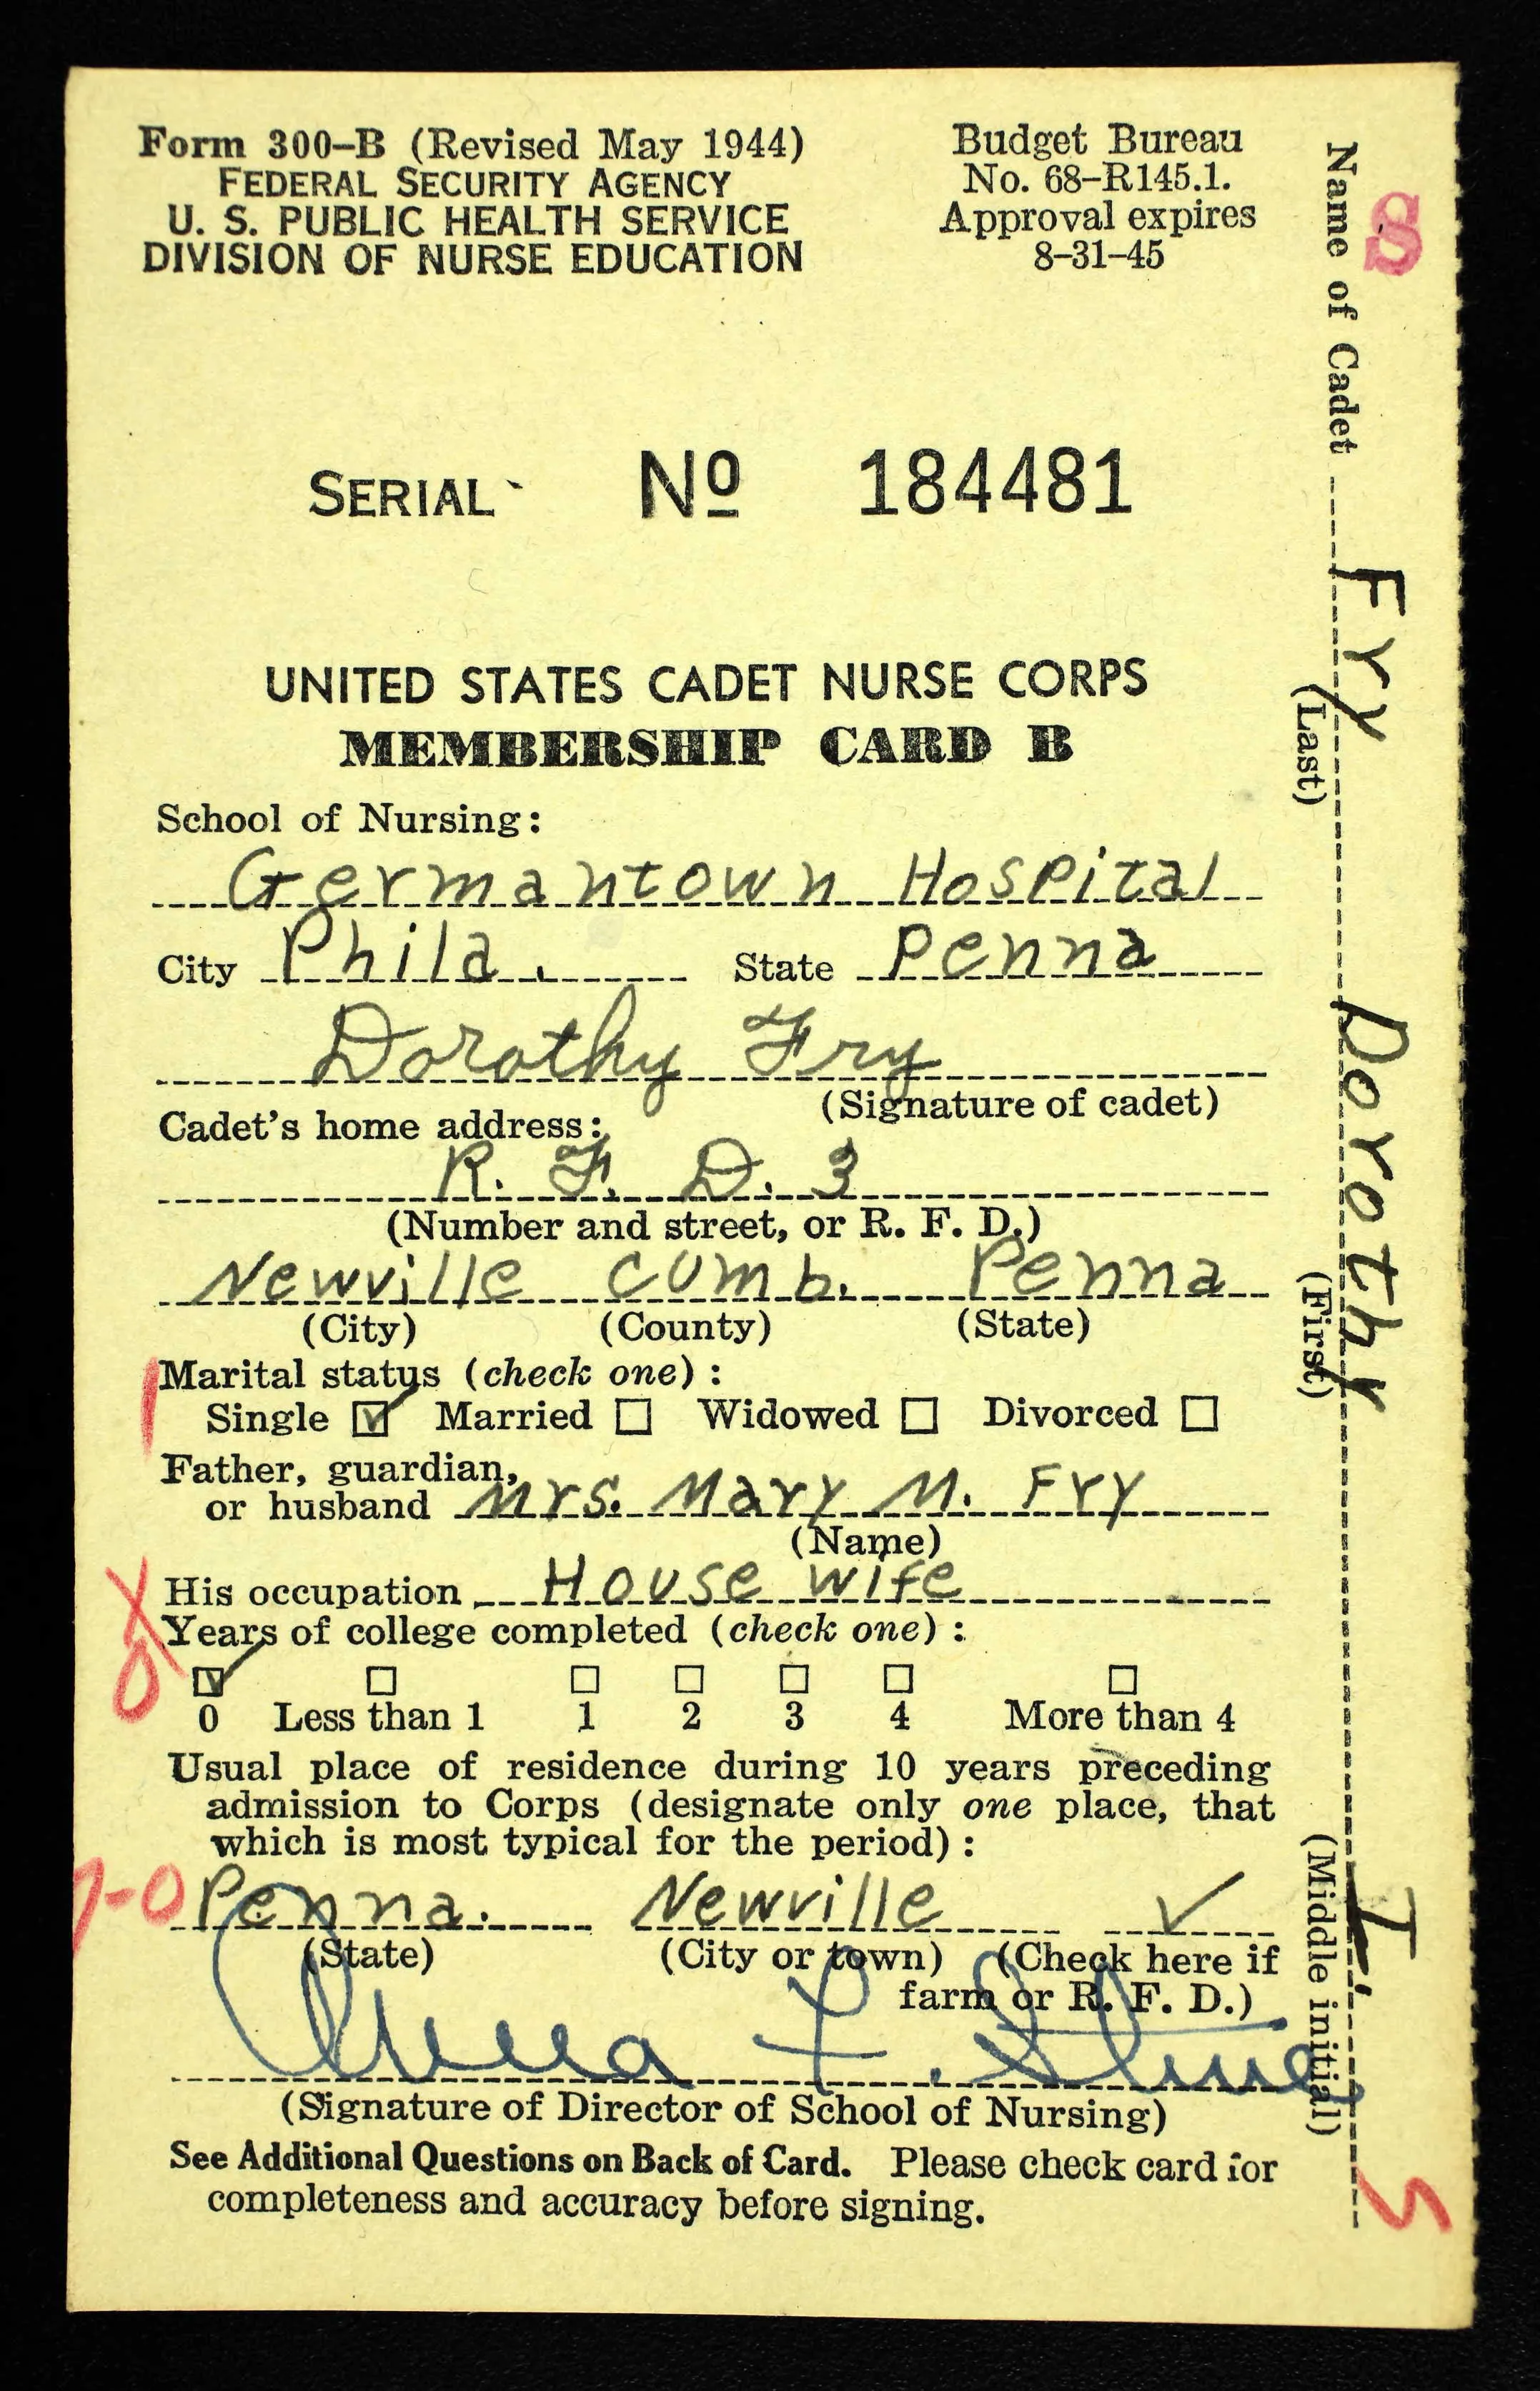 Form 300-B (Revised May 1944)
FEDERAL SECURITY AGENCY
U. S. PUBLIC HEALTH SERVICE
DIVISION OF NURSE EDUCATION
Budget Bureau
No. 68-R145.1.
Approval expires
8-31-45
SERIAL No 184481
UNITED STATES CADET NURSE CORPS
MEMBERSHIP CARD B
School of Nursing:
Germantown Hospital
City Phila. State Penna
Dorothy Fry
(Signature of cadet)
Cadet's home address:
R. F. D. 3
(Number and street, or R. F. D.)
Newville Cumb. Penna
(City) (County) (State)
1
Marital status (check one):
Single ☑ Married ☐ Widowed ☐ Divorced ☐
Father, guardian,
or husband Mrs. Mary M. Fry
(Name)
X
His occupation House wife
Years of college completed (check one):
0
☑ ☐ ☐ ☐ ☐ ☐ ☐
0 Less than 1 1 2 3 4 More than 4
Usual place of residence during 10 years preceding
admission to Corps (designate only one place, that
which is most typical for the period):
7-0
Penna. Newville ✓
(State) (City or town) (Check here if
farm or R. F. D.)
Anna L.
(Signature of Director of School of Nursing)
See Additional Questions on Back of Card. Please check card for
completeness and accuracy before signing.
Name of Cadet Fry Dorothy I.
(Last) (First) (Middle initial)
S
5